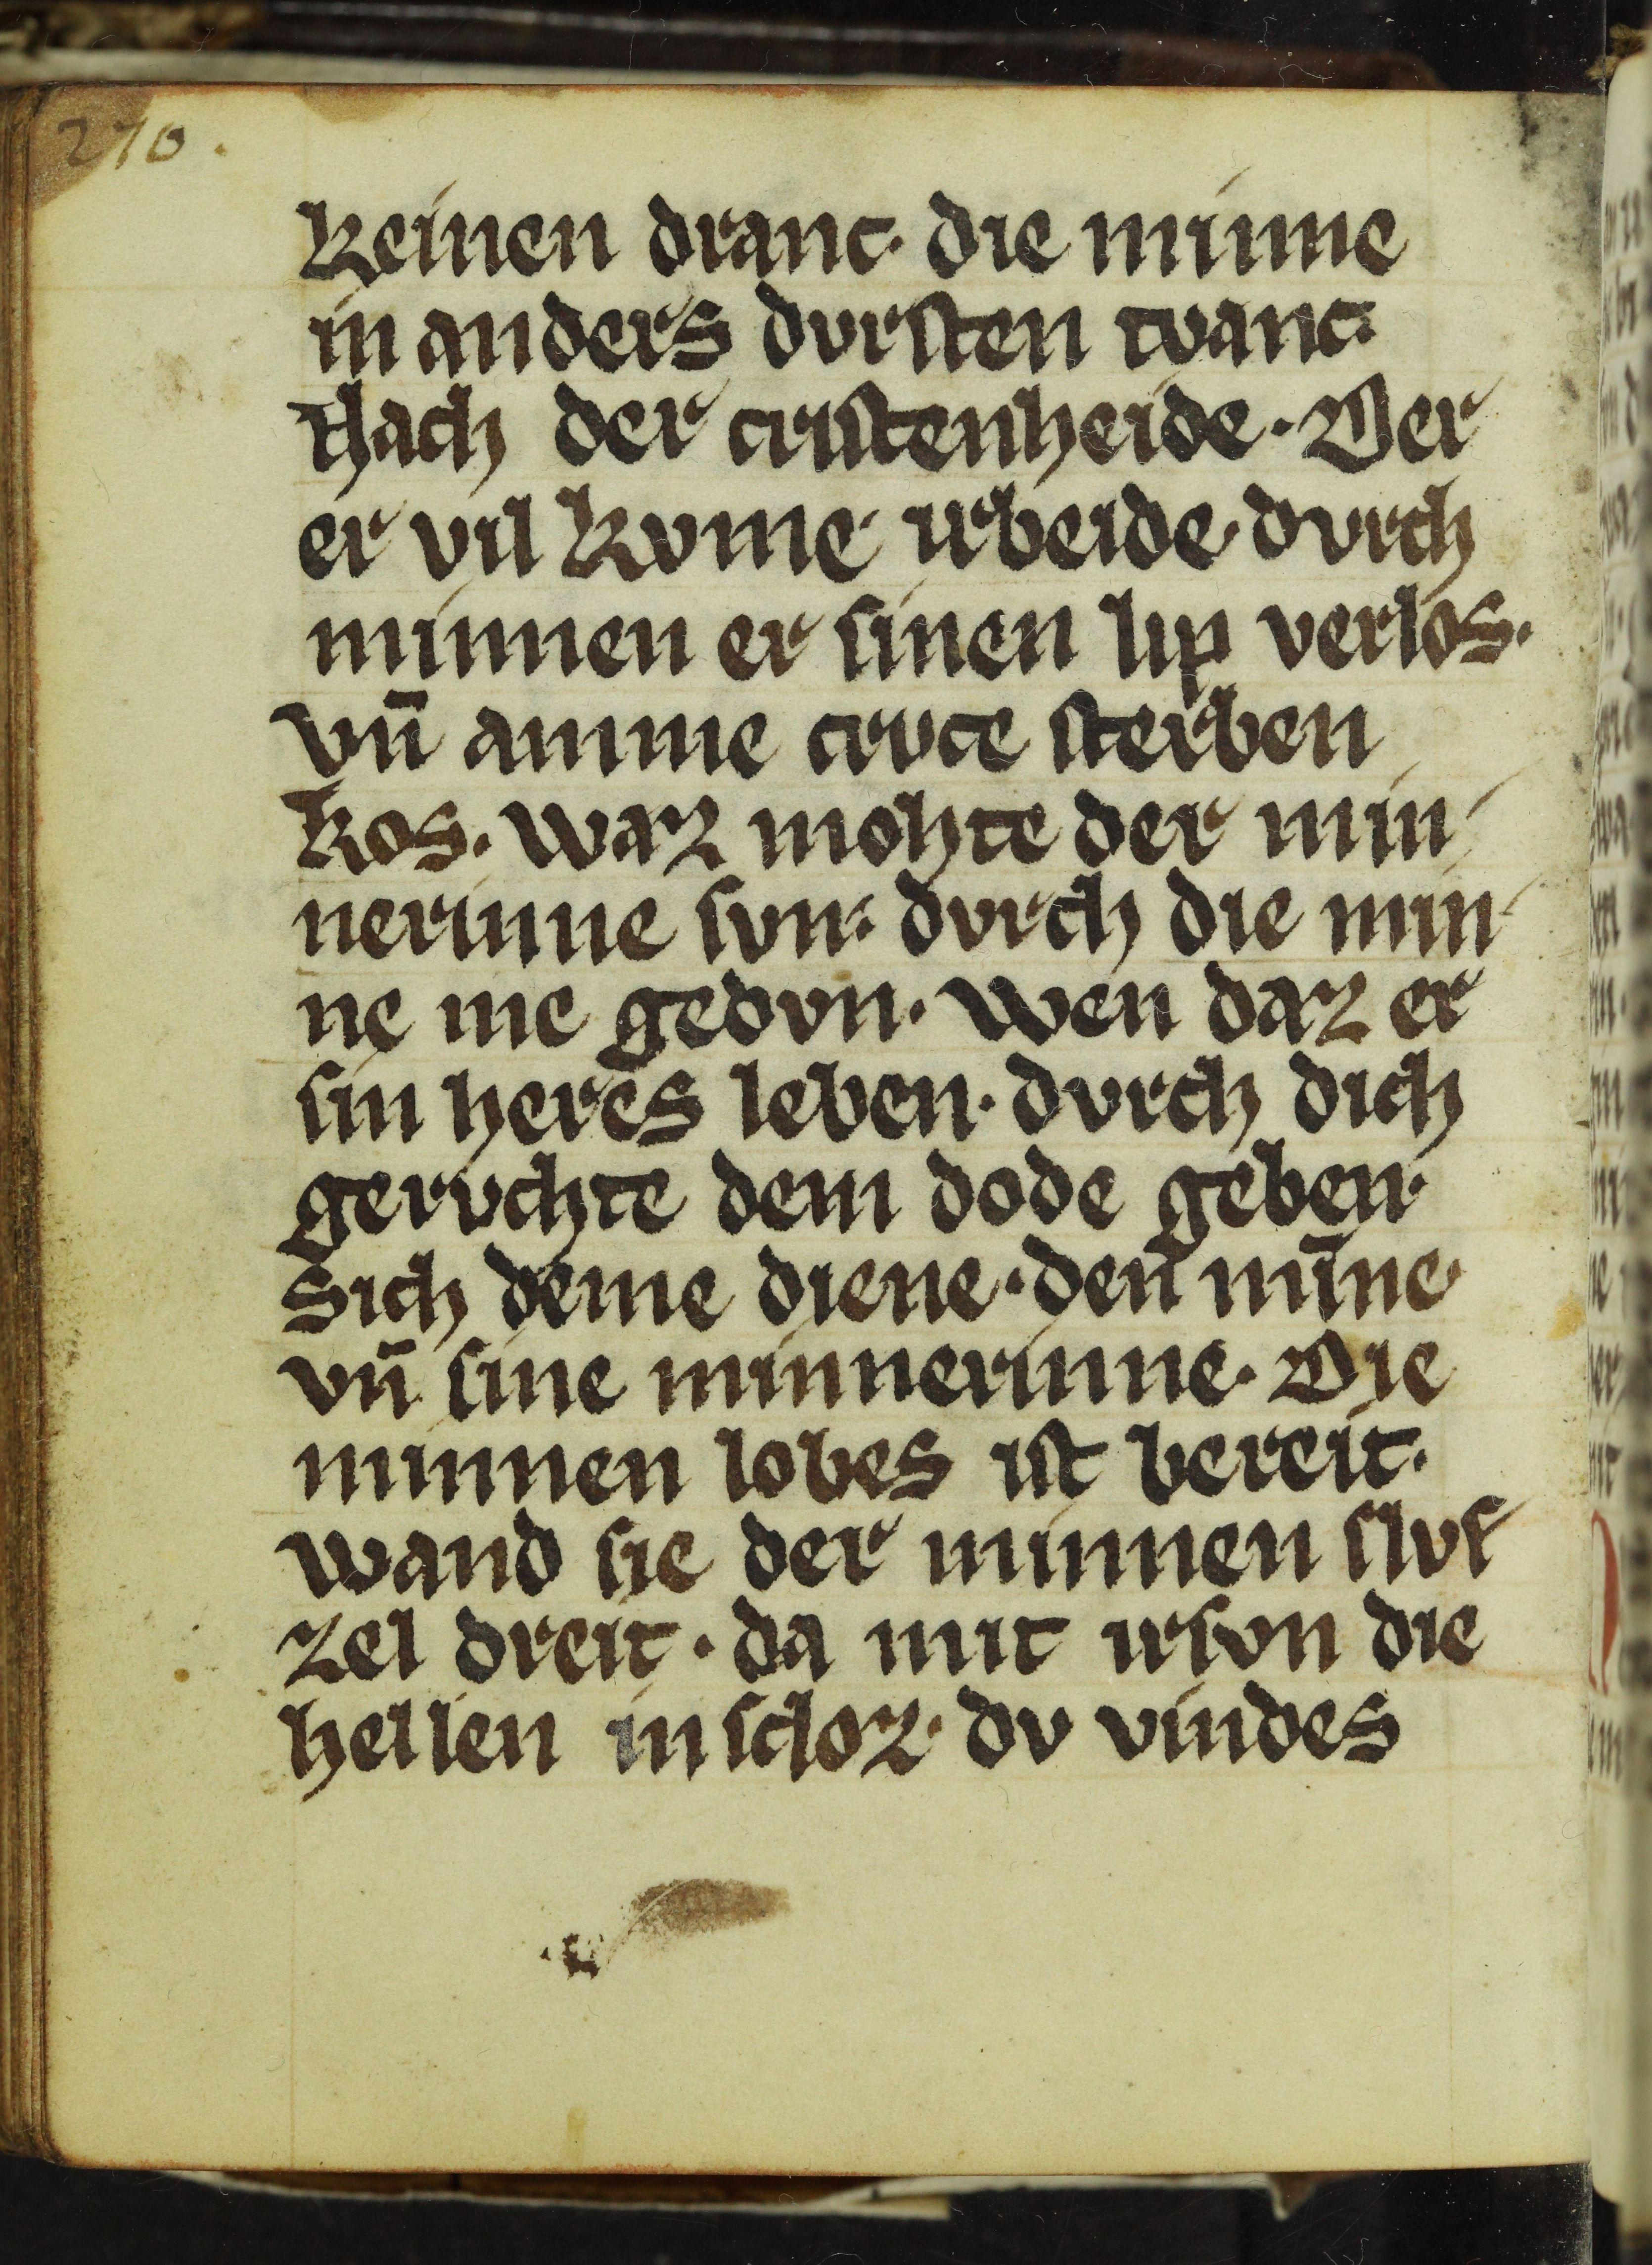 210.
keinen dranc· die minne
in anders dvrſten tvanc·
Nach der criſtenheide· Der
er vil kvme irbeide· dvrch
minnen er ſinen lip verlos·
vn̄ amme crvce ſterben
kos· waz mohte der min
nerinne ſvn· dvrch die min
ne me gedvn· wen daz er
ſin heres leben· dvrch dich
gervchte dem dode geben·
Sich deme diene· den̄ mīne
vn̄ ſine minnerinne· Die
minnen lobes iſt bereit·
wand ſie der minnen ſlvſ
zel dreit· da mit irſvn die
hellen inſcloz· dv vindes